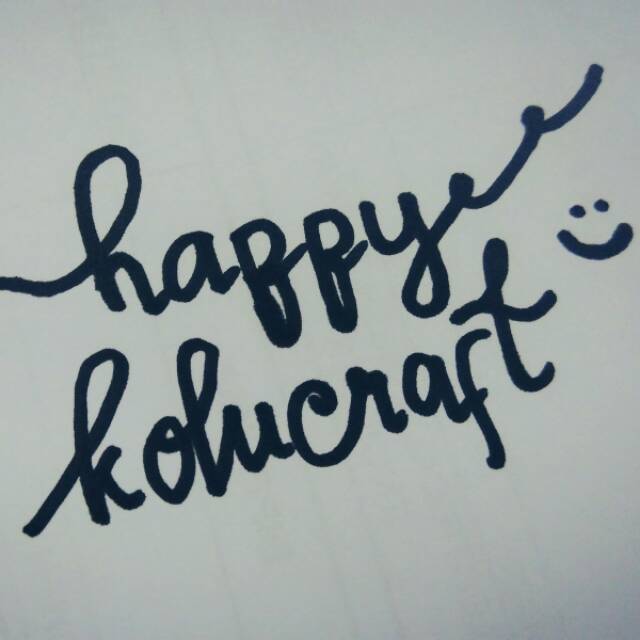 happy
kolucraft